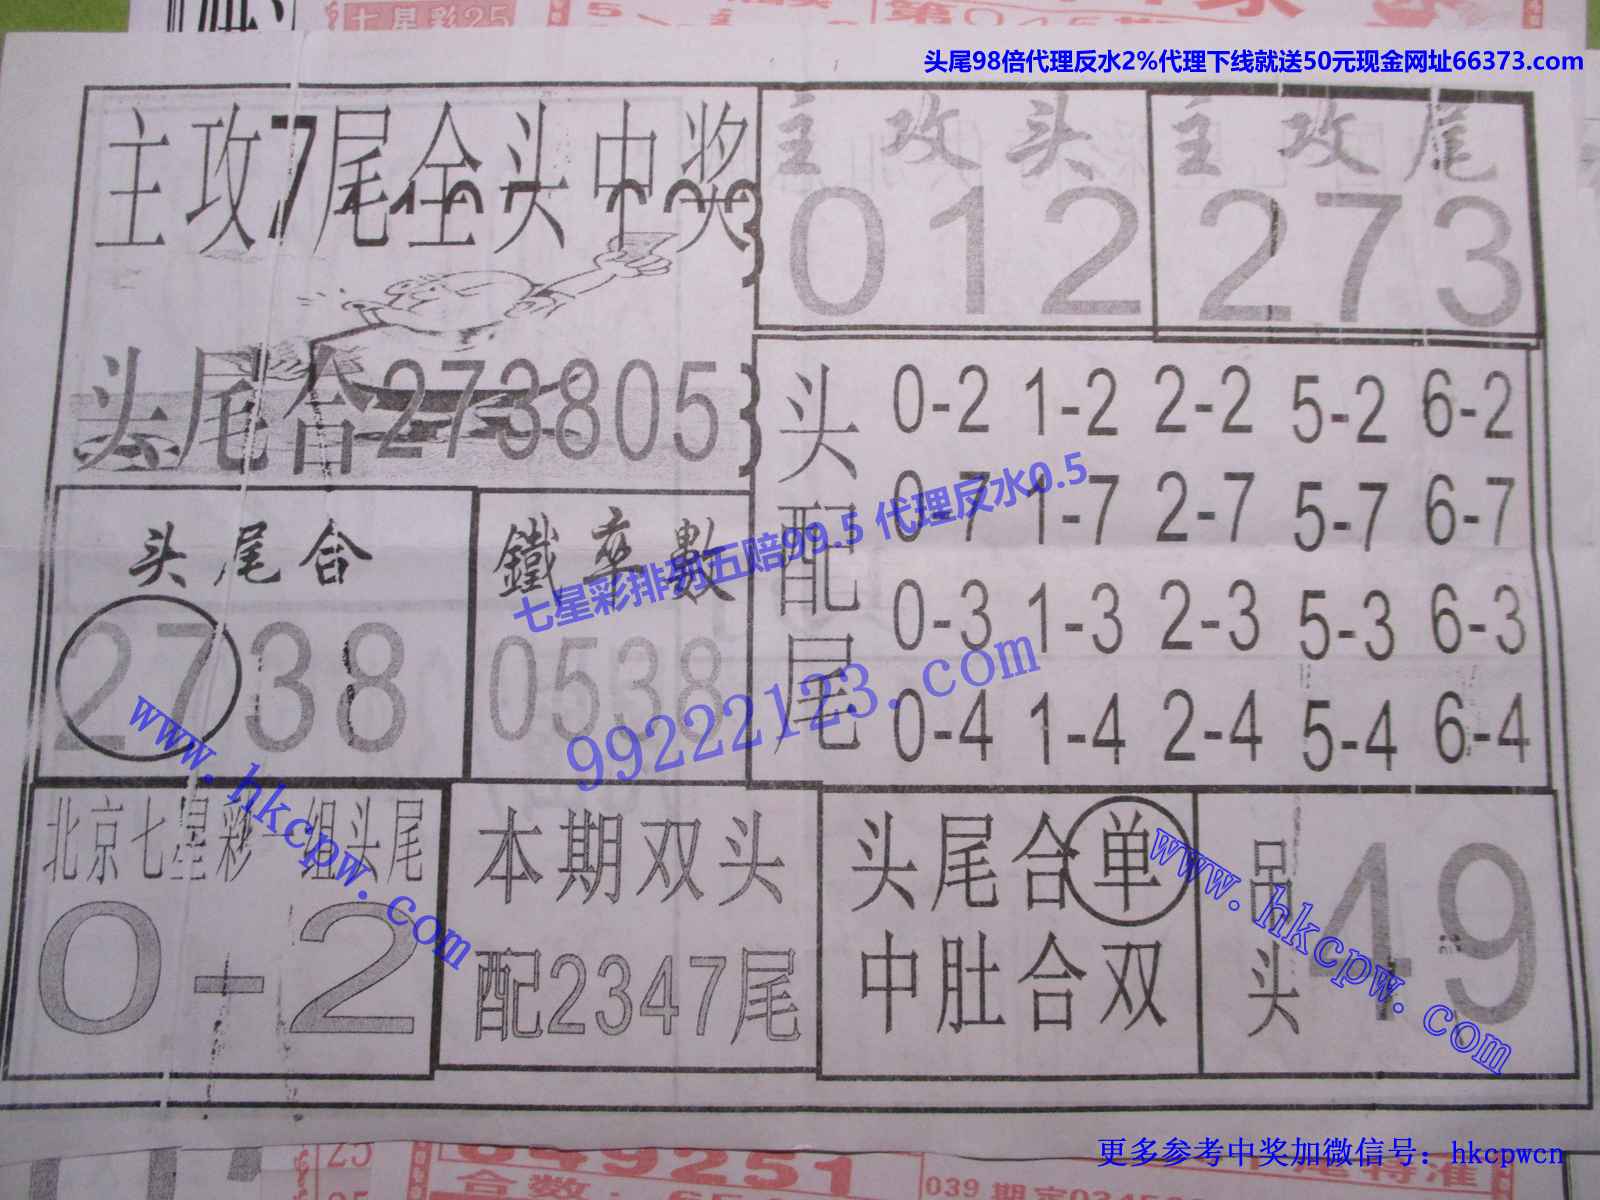 七星彩25
头尾98倍代理反水2%代理下线就送50元现金网址66373.com
主攻7尾全头中奖
主攻头
012
主攻尾
273
头尾合273805
头配尾
0-2 1-2 2-2 5-2 6-2
0-7 1-7 2-7 5-7 6-7
0-3 1-3 2-3 5-3 6-3
0-4 1-4 2-4 5-4 6-4
头尾合
2738
鐵率數
0538
七星彩排列五赔99.5 代理反水0.5
99222123.com
www.hkcpw.com
北京七星彩一组头尾
0-2
本期双头
配2347尾
头尾合单
中肚合双
吊头
49
www.hkcpw.com
更多参考中奖加微信号：hkcpwcn
25
049251
合数:
039期定